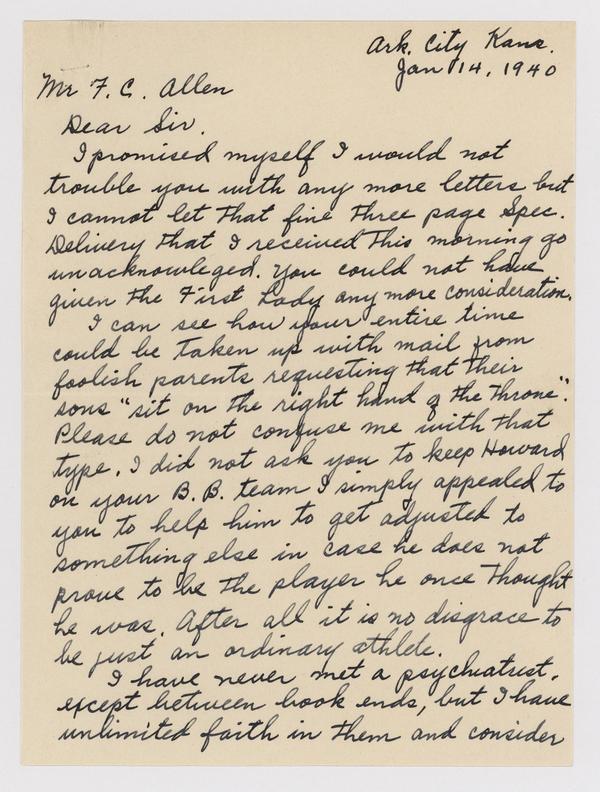 Ark. City Kans.
Jan 14, 1940
Mr F. C. Allen
Dear Sir.
I promised myself I would not
trouble you with any more letters but
I cannot let that fine three page Spec.
Delivery that I received this morning go
unacknowleged. You could not have
given the First Lady any more consideration.
I can see how your entire time
could be taken up with mail from
foolish parents requesting that their
sons "sit on the right hand of the throne".
Please do not confuse me with that
type. I did not ask you to keep Howard
on your B.B. team I simply appealed to
you to help him to get adjusted to
something else in case he does not
prove to be the player he once thought
he was. After all it is no disgrace to
be just an ordinary athlete.
I have never met a psychiatrist,
except between book ends, but I have
unlimited faith in them and consider